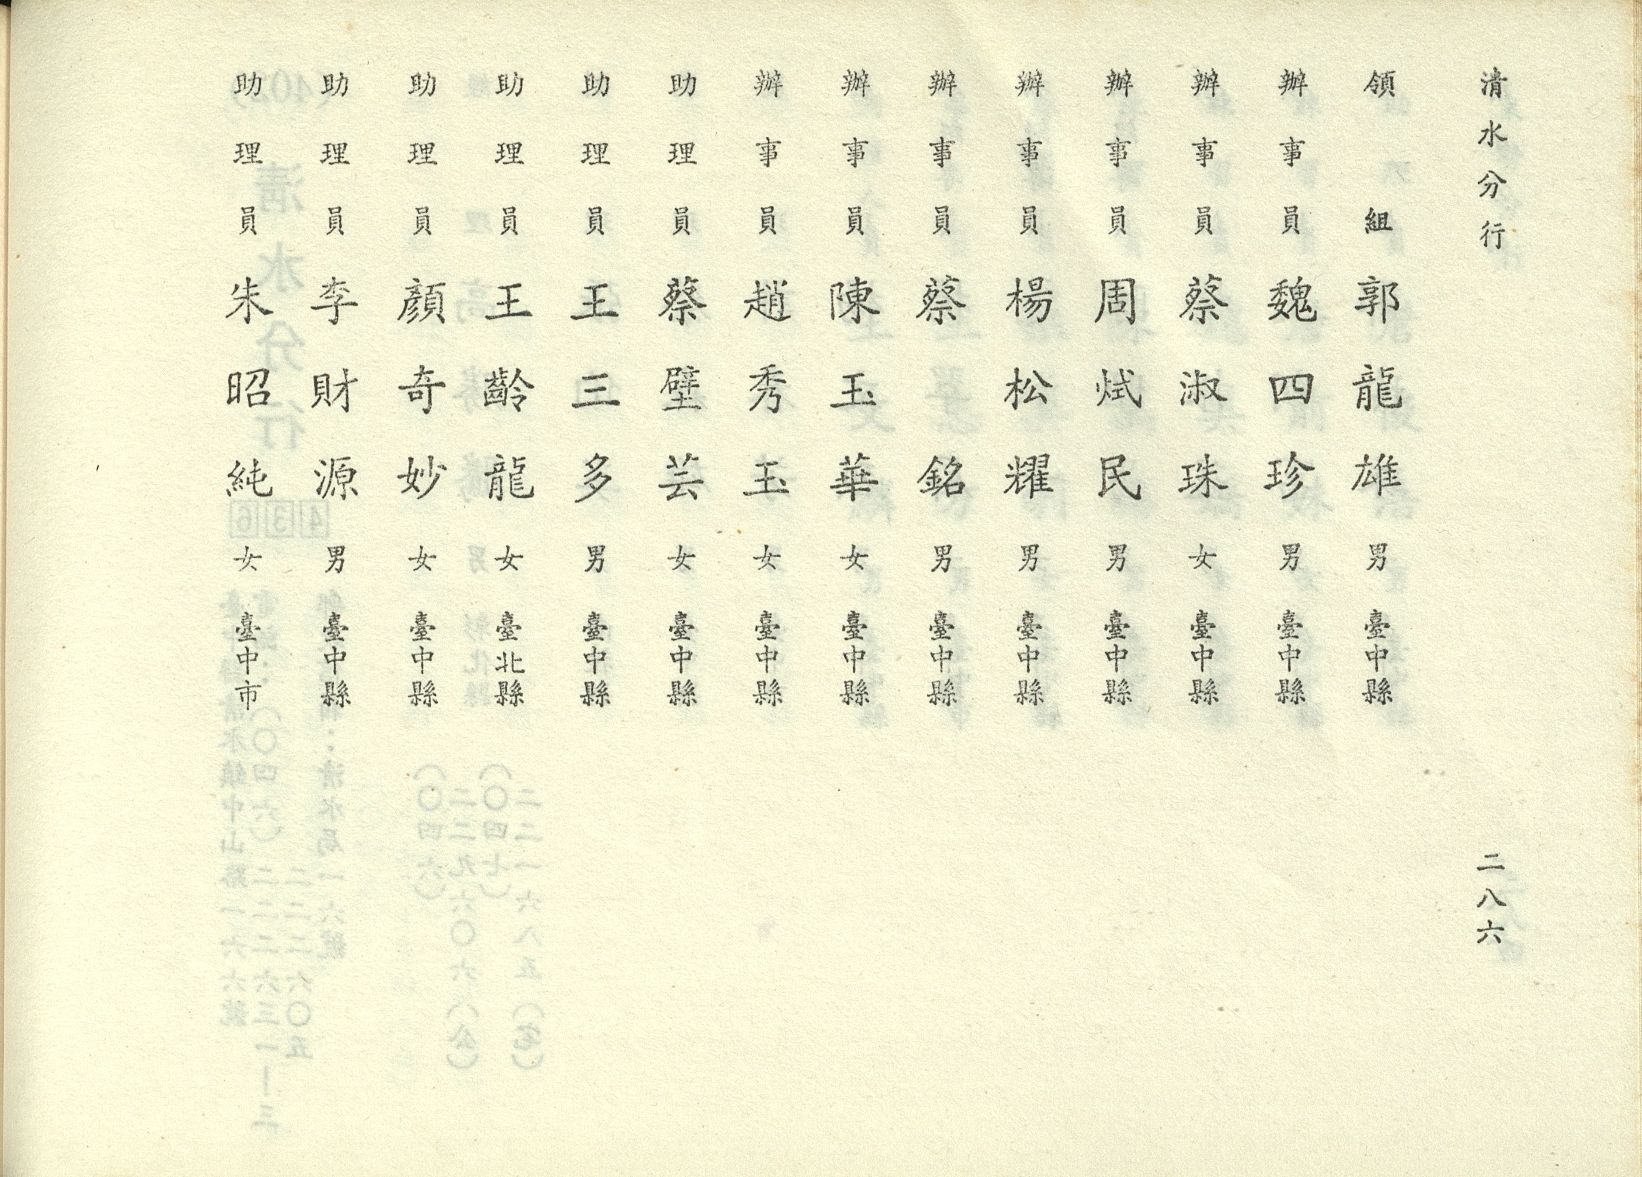 清水分行
二八六
領組 郭龍雄 男 臺中縣
辦事員 魏四珍 男 臺中縣
辦事員 蔡淑珠 女 臺中縣
辦事員 周烒民 男 臺中縣
辦事員 楊松耀 男 臺中縣
辦事員 蔡銘 男 臺中縣
辦事員 陳玉華 女 臺中縣
辦事員 趙秀玉 女 臺中縣
助理員 蔡壁芸 女 臺中縣
助理員 王三多 男 臺中縣
助理員 王齡龍 女 臺北縣
助理員 顏奇妙 女 臺中縣
助理員 李財源 男 臺中縣
助理員 朱昭純 女 臺中市